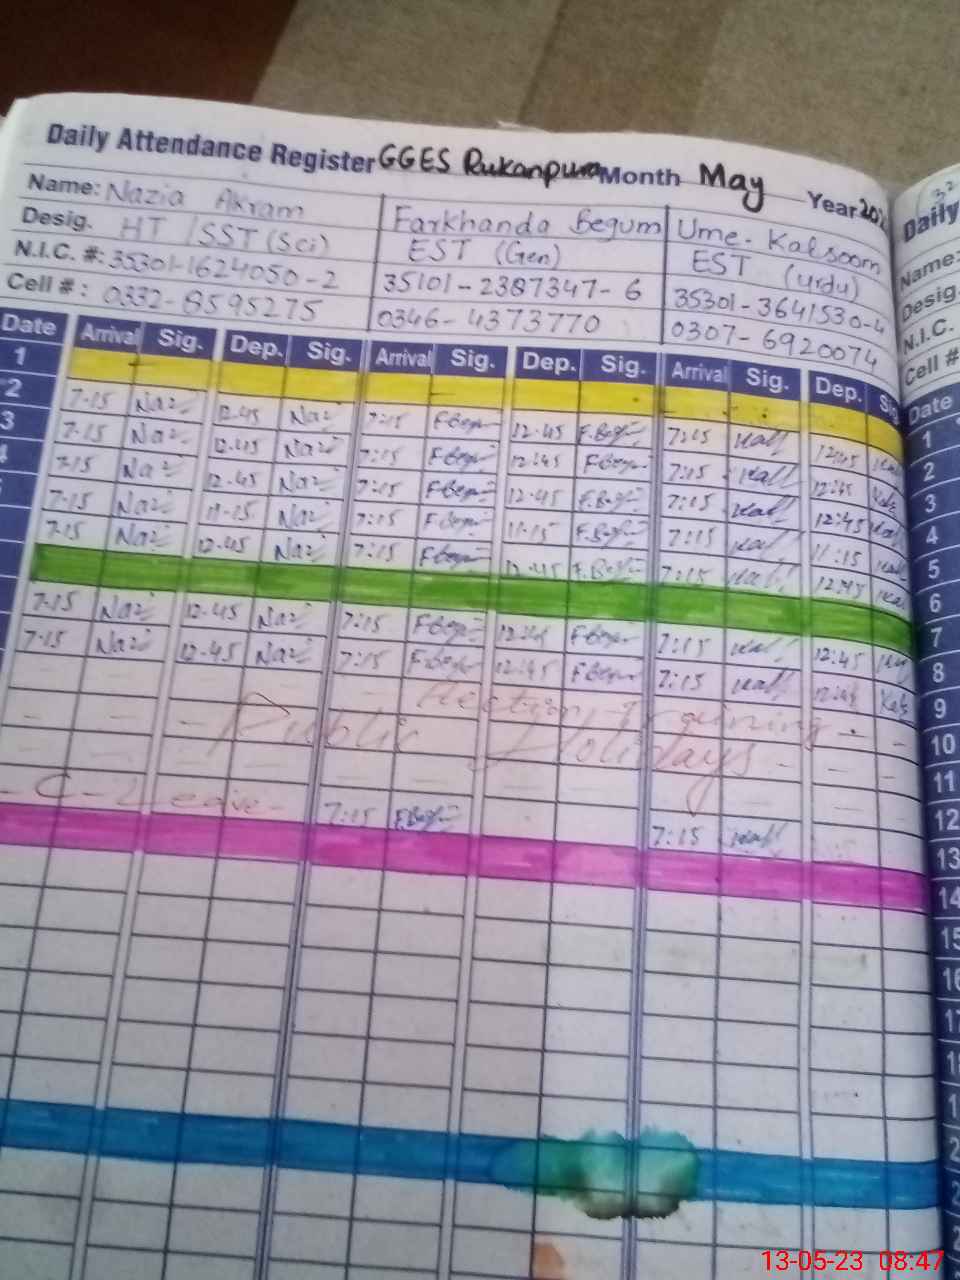 Daily Attendance Register GGES Rukanpura Month May Year 202
Name: Nazia Akram Farkhanda Begum Ume. Kalsoom
Desig. HT / SST (Sci) EST (Gen) EST (urdu)
N.I.C. #: 35301-1624050-2 35101-2387347-6 35301-3641530-4
Cell #: 0332-8595275 0346-4373770 0307-6920074
Date Arrival Sig. Dep. Sig. Arrival Sig. Dep. Sig. Arrival Sig. Dep.
1
2 7-15 Naz 12.45 Naz 7:15 F.Begum 12.45 F.Begum 7:15 12:45
3 7-15 Naz 12.45 Naz 7:15 F.Begum 12:45 F.Begum 7:15 12:45
7-15 Naz 12.45 Naz 7:15 F.Begum 12.45 F.Begum 7:15 12:45
7-15 Naz 11-15 Naz 7:15 F.Begum 11-15 F.Begum 7:15 11:15
7-15 Naz 12.45 Naz 7:15 F.Begum 12.45 F.Begum 7:15 12:45
7-15 Naz 12-45 Naz 7:15 F.Begum F.Begum 7:15 12:45
7-15 Naz 12-45 Naz 7:15 F.Begum 12:45 F.Begum 7:15
Election Training
Public Holidays
C-Leave 7:15 F.Begum 7:15
Daily
Name:
Desig.
N.I.C.
Cell #
Date
1
2
3
4
5
6
7
8
9
10
11
12
13
14
15
16
13-05-23 08:47